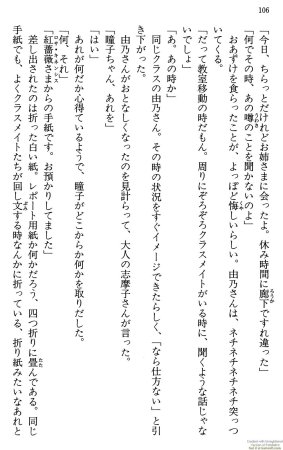 106
「今日、ちらっとだけれどお姉さまに会ったよ。休み時間に廊下ですれ違った」
「何でその時、あの噂のことを聞かないのよ」
おあずけを食らったことが、よっぽど悔しいらしい。由乃さんは、ネチネチネチネチ突っつ
いてくる。
「だって教室移動の時だもん。周りにぞろぞろクラスメイトがいる時に、聞くような話じゃな
いでしょ」
「あ。あの時か」
同じクラスの由乃さん。その時の状況をすぐイメージできたらしく、「なら仕方ない」と引
き下がった。
由乃さんがおとなしくなったのを見計らって、大人の志摩子さんが言った。
「瞳子ちゃん、あれを」
「はい」
あれが何だか心得ているようで、瞳子がどこからか何かを取りだした。
「何、それ」
「紅薔薇さまの手紙です。お預かりしてました」
差し出されたのは折った白い紙。レポート用紙か何かだろう、四つ折りに畳んである。同じ
手紙でも、よくクラスメイトたちが回し文する時なんかに折っている、折り紙みたいなあれと